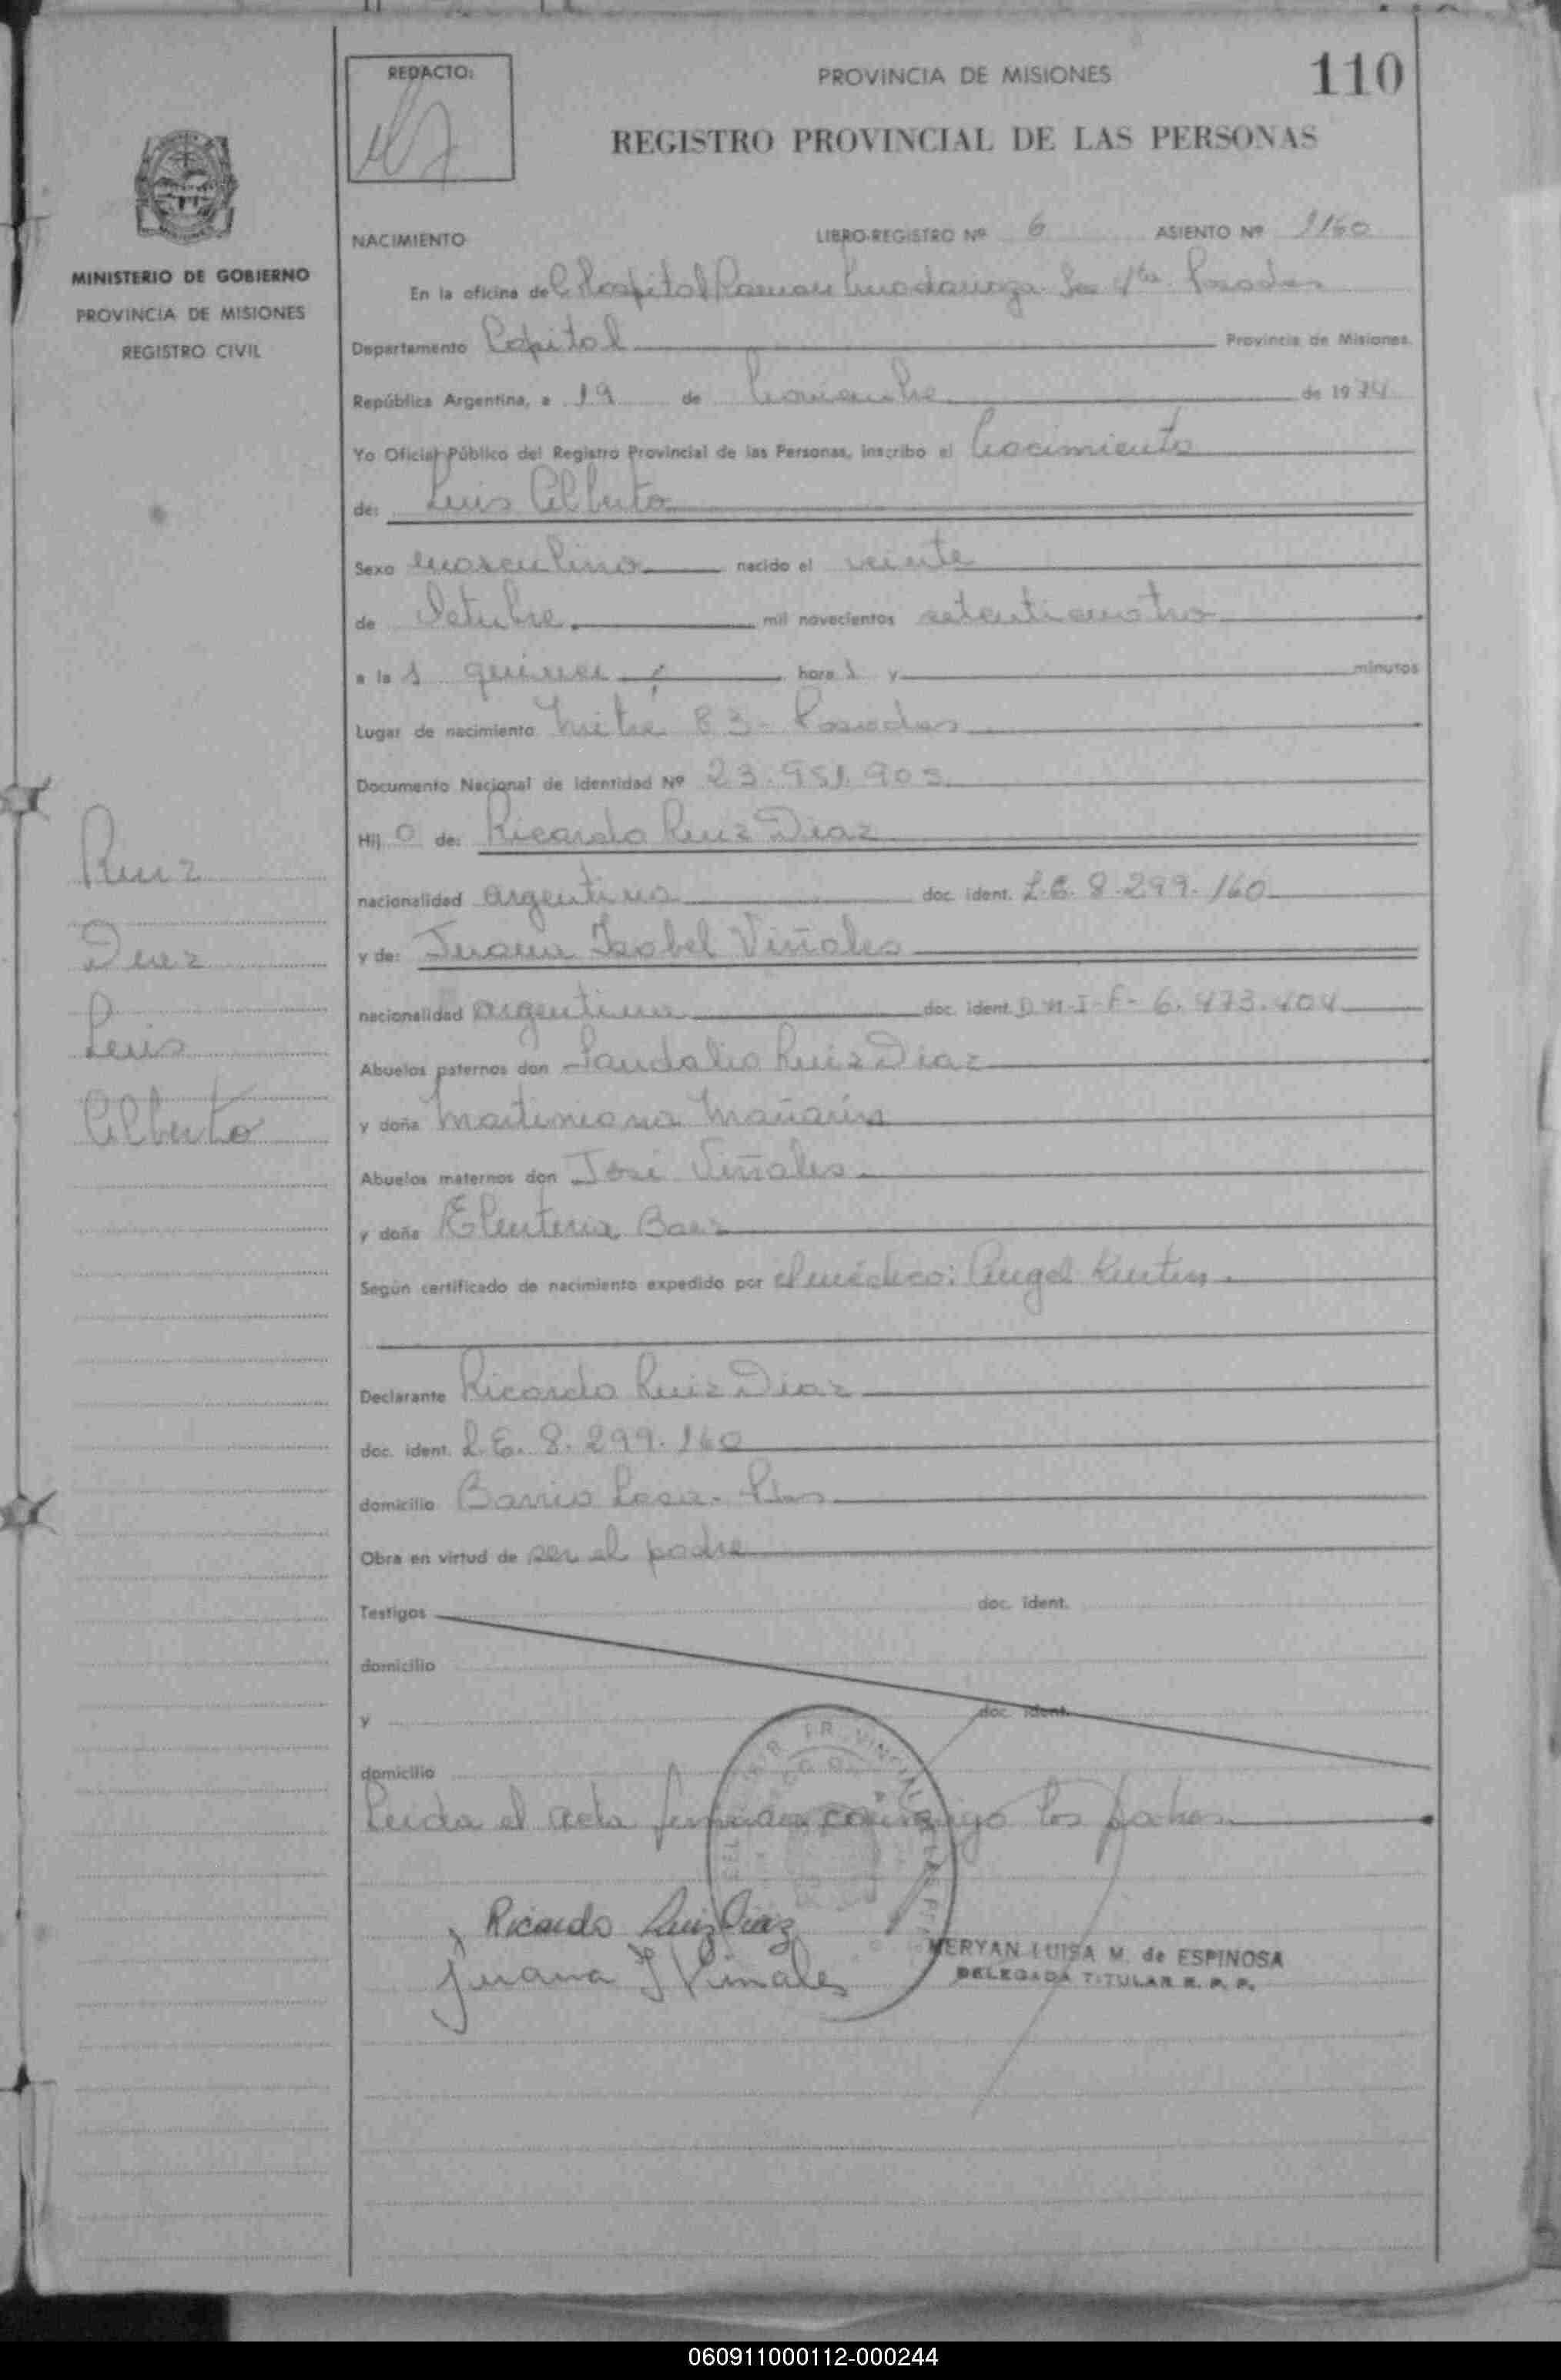 REDACTO:
PROVINCIA DE MISIONES
110
REGISTRO PROVINCIAL DE LAS PERSONAS
MINISTERIO DE GOBIERNO
PROVINCIA DE MISIONES
REGISTRO CIVIL
NACIMIENTO LIBRO-REGISTRO Nº 6 ASIENTO Nº 1160
En la oficina del Hospital Ramon Madariaga Sec 4ta Posadas
Departamento Capital Provincia de Misiones.
República Argentina, a 19 de Noviembre de 1974
Yo Oficial Público del Registro Provincial de las Personas, inscribo el Nacimiento
de: Luis Alberto
Sexo masculino nacido el veinte
de Octubre mil novecientos setenticuatro
a las quince hora s y minutos
Lugar de nacimiento Mitre 83 - Posadas
Documento Nacional de Identidad Nº 23.951.903
Hij o de: Ricardo Ruiz Diaz
nacionalidad argentino doc. ident. L.E. 8.299.160
y de: Juana Isabel Viñales
nacionalidad argentina doc. ident. D.N.I-F- 6.473.404
Abuelos paternos don Sandalio Ruiz Diaz
y doña Martiniana
Abuelos maternos don José Viñales
y doña Eleuteria Baez
Según certificado de nacimiento expedido por el médico: Angel
Declarante Ricardo Ruiz Diaz
doc. ident. L.E. 8.299.160
domicilio Barrio - Pdas
Obra en virtud de ser el padre
Testigos doc. ident.
domicilio
y doc. ident.
domicilio
Leida el acta firman conmigo los padres
Ricardo Ruiz Diaz
Juana I Viñales
MERYAN LUISA M. de ESPINOSA
DELEGADA TITULAR R. P. P.
Ruiz
Diaz
Luis
Alberto
060911000112-000244